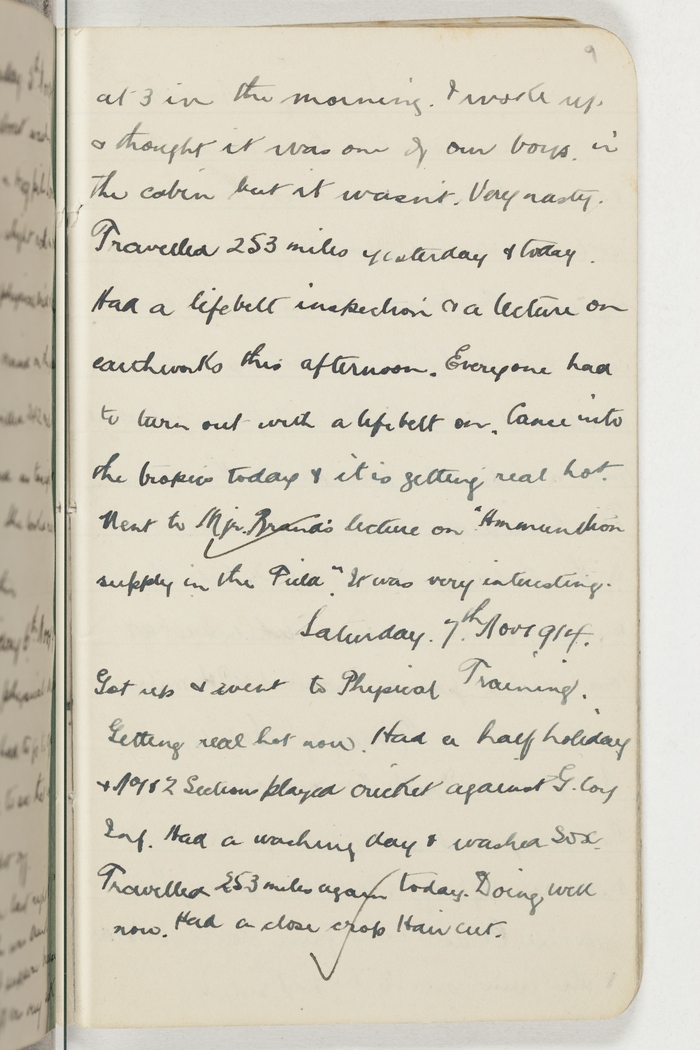 9
at 3 in the morning. I woke up
& thought it was one of our boys. in
the cabin but it wasn't. Very nasty.
Travelled 253 miles yesterday & today.
Had a lifebelt inspection & a lecture on
earthworks this afternoon. Everyone had
to turn out with a lifebelt on. Came into
the tropics today & it is getting real hot.
Went to Mjr. Brand's lecture on "Ammunition
supply in the Field". It was very interesting.
Saturday. 7th Nov 1914.
Got up & went to Physical Training.
Getting real hot now. Had a half holiday
& No 1 & 2 Sections played cricket against G. Coy
Inf. Had a washing day & washed Sox.
Travelled 253 miles again today. Doing well
now. Had a close crop Hair cut.